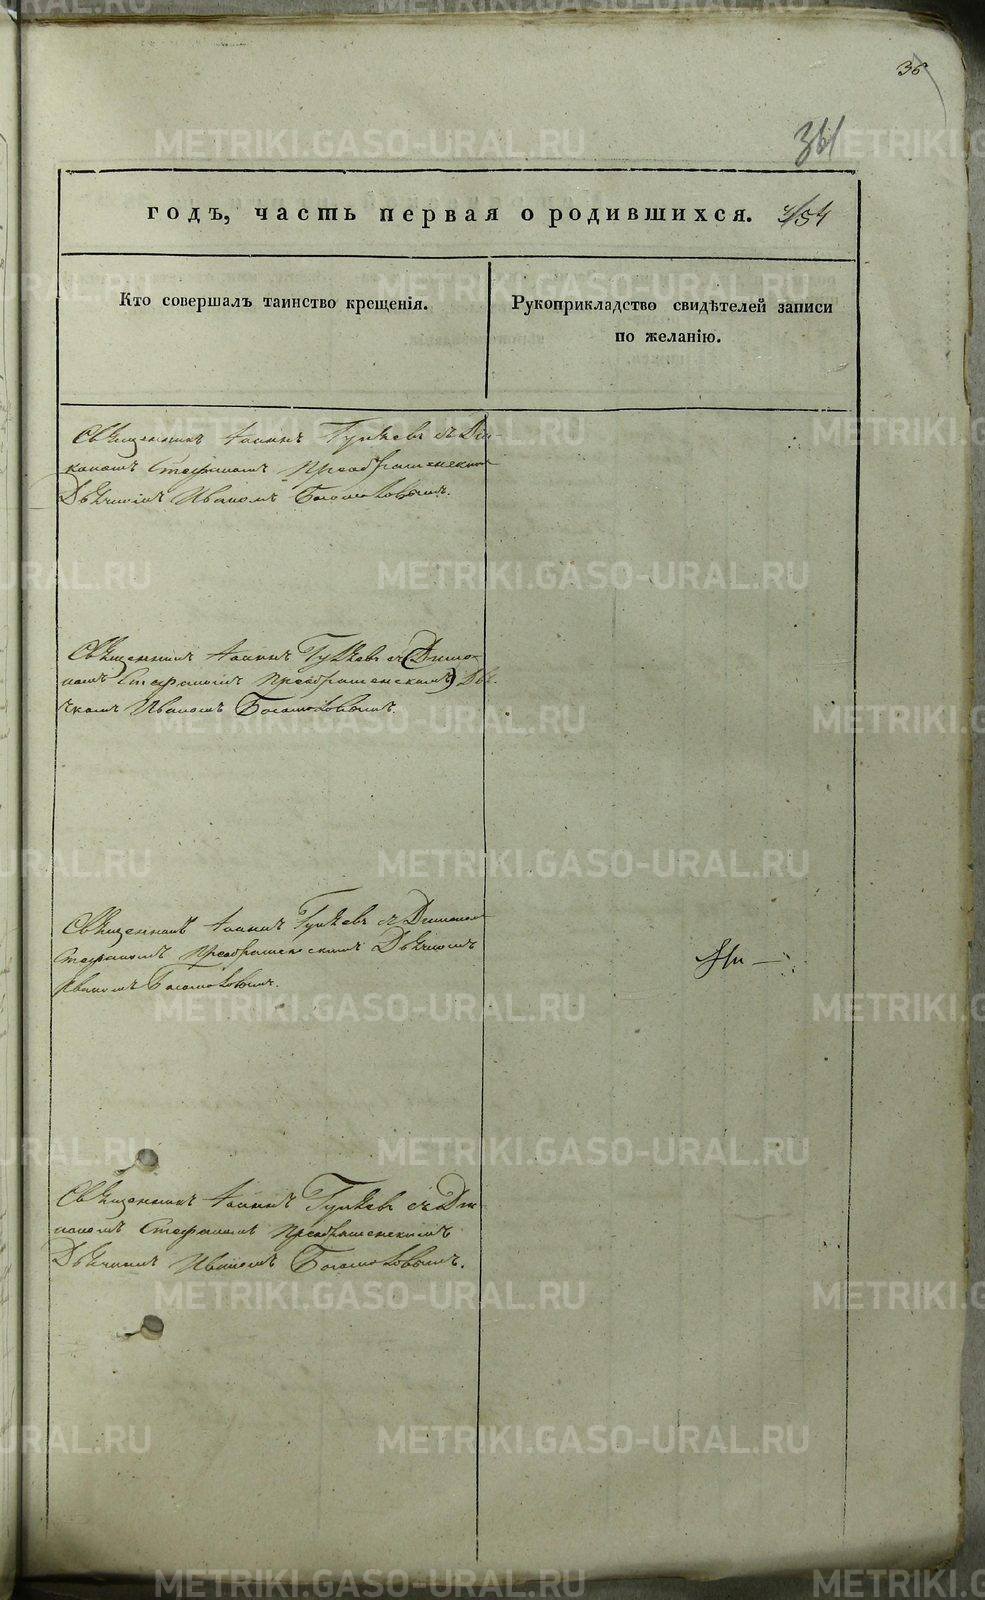 36
361
годъ, часть первая о родившихся. 4/54
Кто совершалъ таинство крещенія.
Рукоприкладство свидѣтелей записи
по желанію.
Священникъ Іоаннъ съ Діа-
кономъ Стефаномъ Преображенскимъ
Дьячкомъ Иваномъ Богомоловымъ.
Священникъ Іоаннъ съ Діако-
номъ Стефаномъ Преображенскимъ Дья-
чкомъ Иваномъ Богомоловымъ.
Священникъ Іоаннъ съ Діакономъ
Стефаномъ Преображенскимъ Дьячкомъ
Иваномъ Богомоловымъ.
Священникъ Іоаннъ съ Діа-
кономъ Стефаномъ Преображенскимъ
Дьячкомъ Иваномъ Богомоловымъ.
METRIKI.GASO-URAL.RU